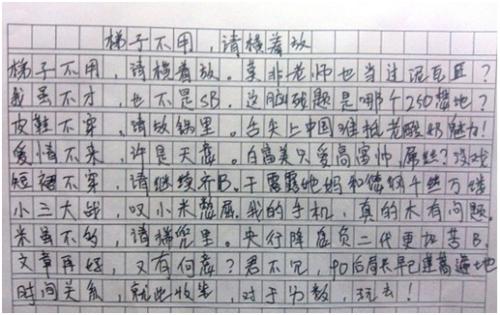 梯子不用，请横着放
梯子不用，请横着放。莫非老师也当过泥瓦匠？
我虽不才，也不是SB。这脑残题是哪个250想地？
皮鞋不穿，请放锅里。舌尖上中国难抵老酸奶魅力！
爱情不来，许是天意。白富美只爱高富帅，屌丝？没戏
短裙不穿，请继续齐B。干露露她妈和 千丝万缕
小三大战，叹小米憋屈。我的手机，真的木有问题
米虽不多，请揣兜里。央行降息负二代更加苦B。
文章再好，又有何意？君不见，90后局长早已遮篱遍地
时间关系，就此收笔，对于分数，玩去！